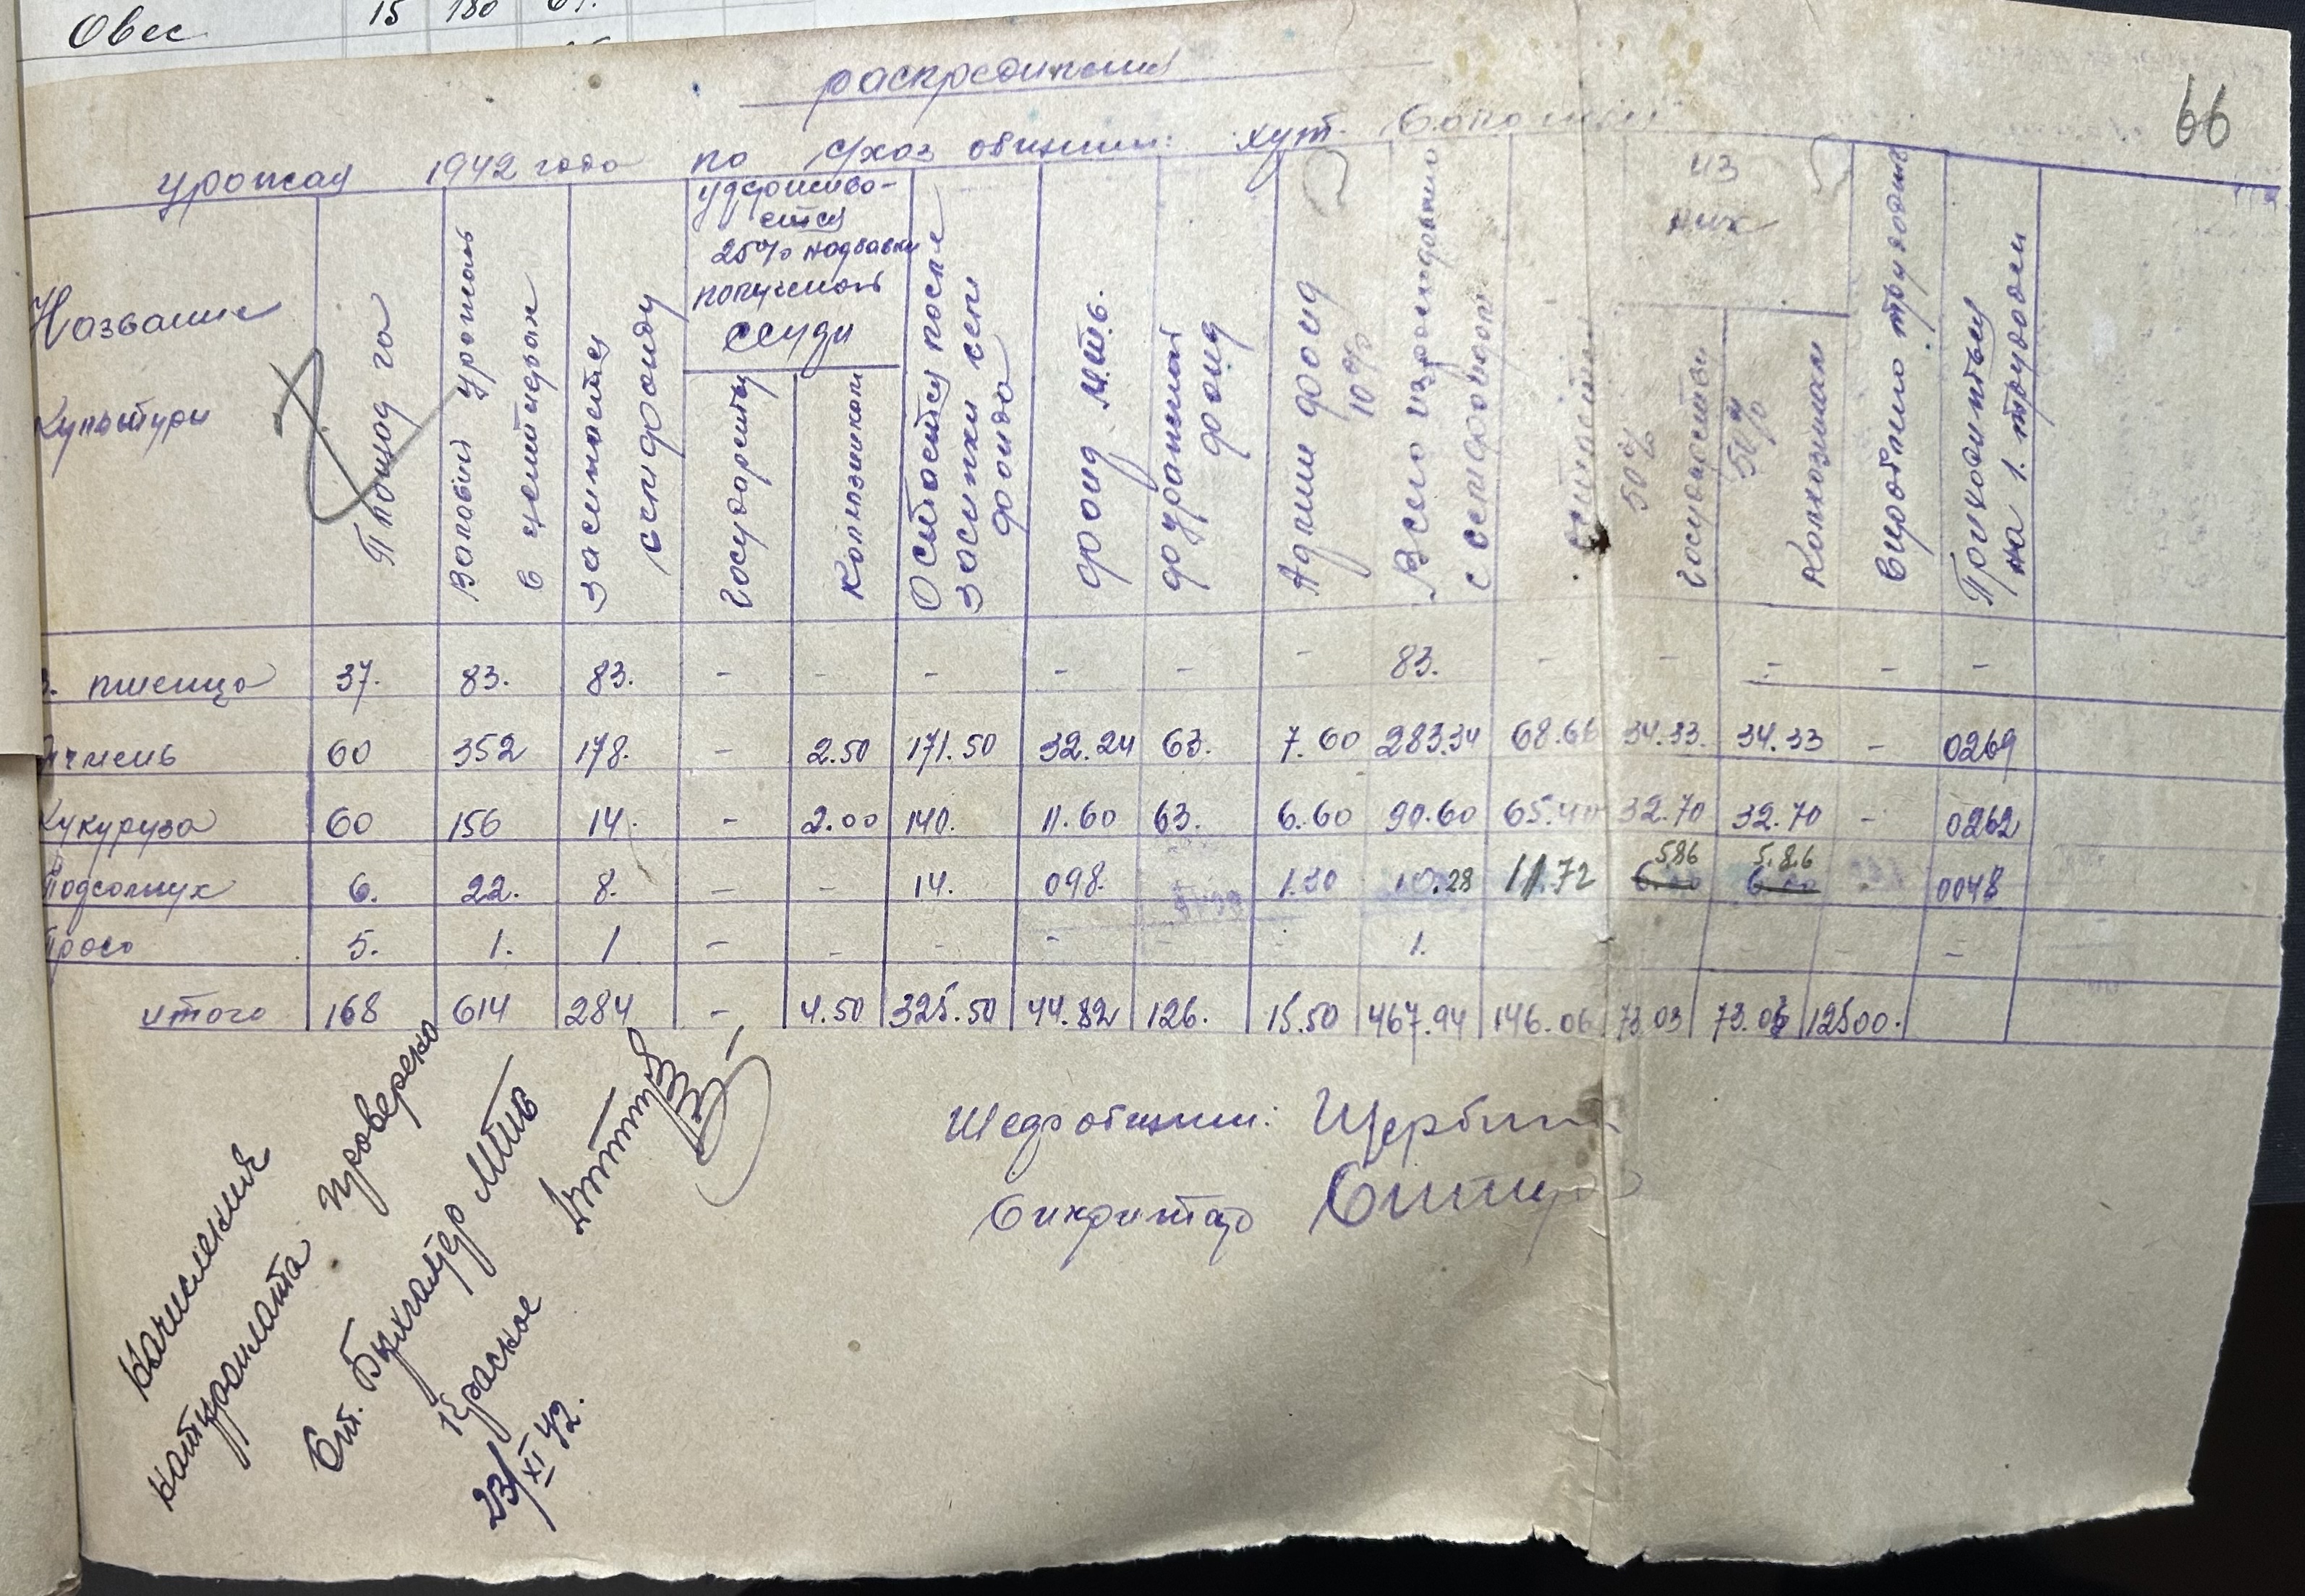 Овес 15 180
66
распредиления
урожая 1942 года по с/хоз общини: хут.
Название культури
Площад га
Валовый урожай в центнерах
засипается семфонду
удерживается 25% надбавки полученой ссуди
государству
колхозникам
Остается после засипки сем фонда
фонд М.Т.С.
фуражной фонд
Адми фонд 10%
Всего израсходовано с семфондом
остаток
из них
50% государству
50% колхозникам
вироблено трудодней
Приходиться на 1. трудодень
пшеница 37. 83. 83. - - - - - - 83. - - - - -
Ячмень 60 352 178. - 2.50 171.50 32.24 63. 7.60 283.34 68.66 34.33. 34.33 - 0269
Кукуруза 60 156 14. - 2.00 140. 11.60 63. 6.60 90.60 65.40 32.70 32.70 - 0262
5.86 5.86
Подсолнух 6. 22. 8. - - 14. 098. 1.30 10.28 11.72 6.00 6.00 0048
Просо 5. 1. 1 - - - - - - 1. - - - - -
итого 168 614 284 - 4.50 325.50 44.82 126. 15.50 467.94 146.06 73.03 73.03 12500.
Начисления
натуроплата проверено
Ст. Бухгалтер МТС
23/XI 42.
Пред общини:
Сикритар